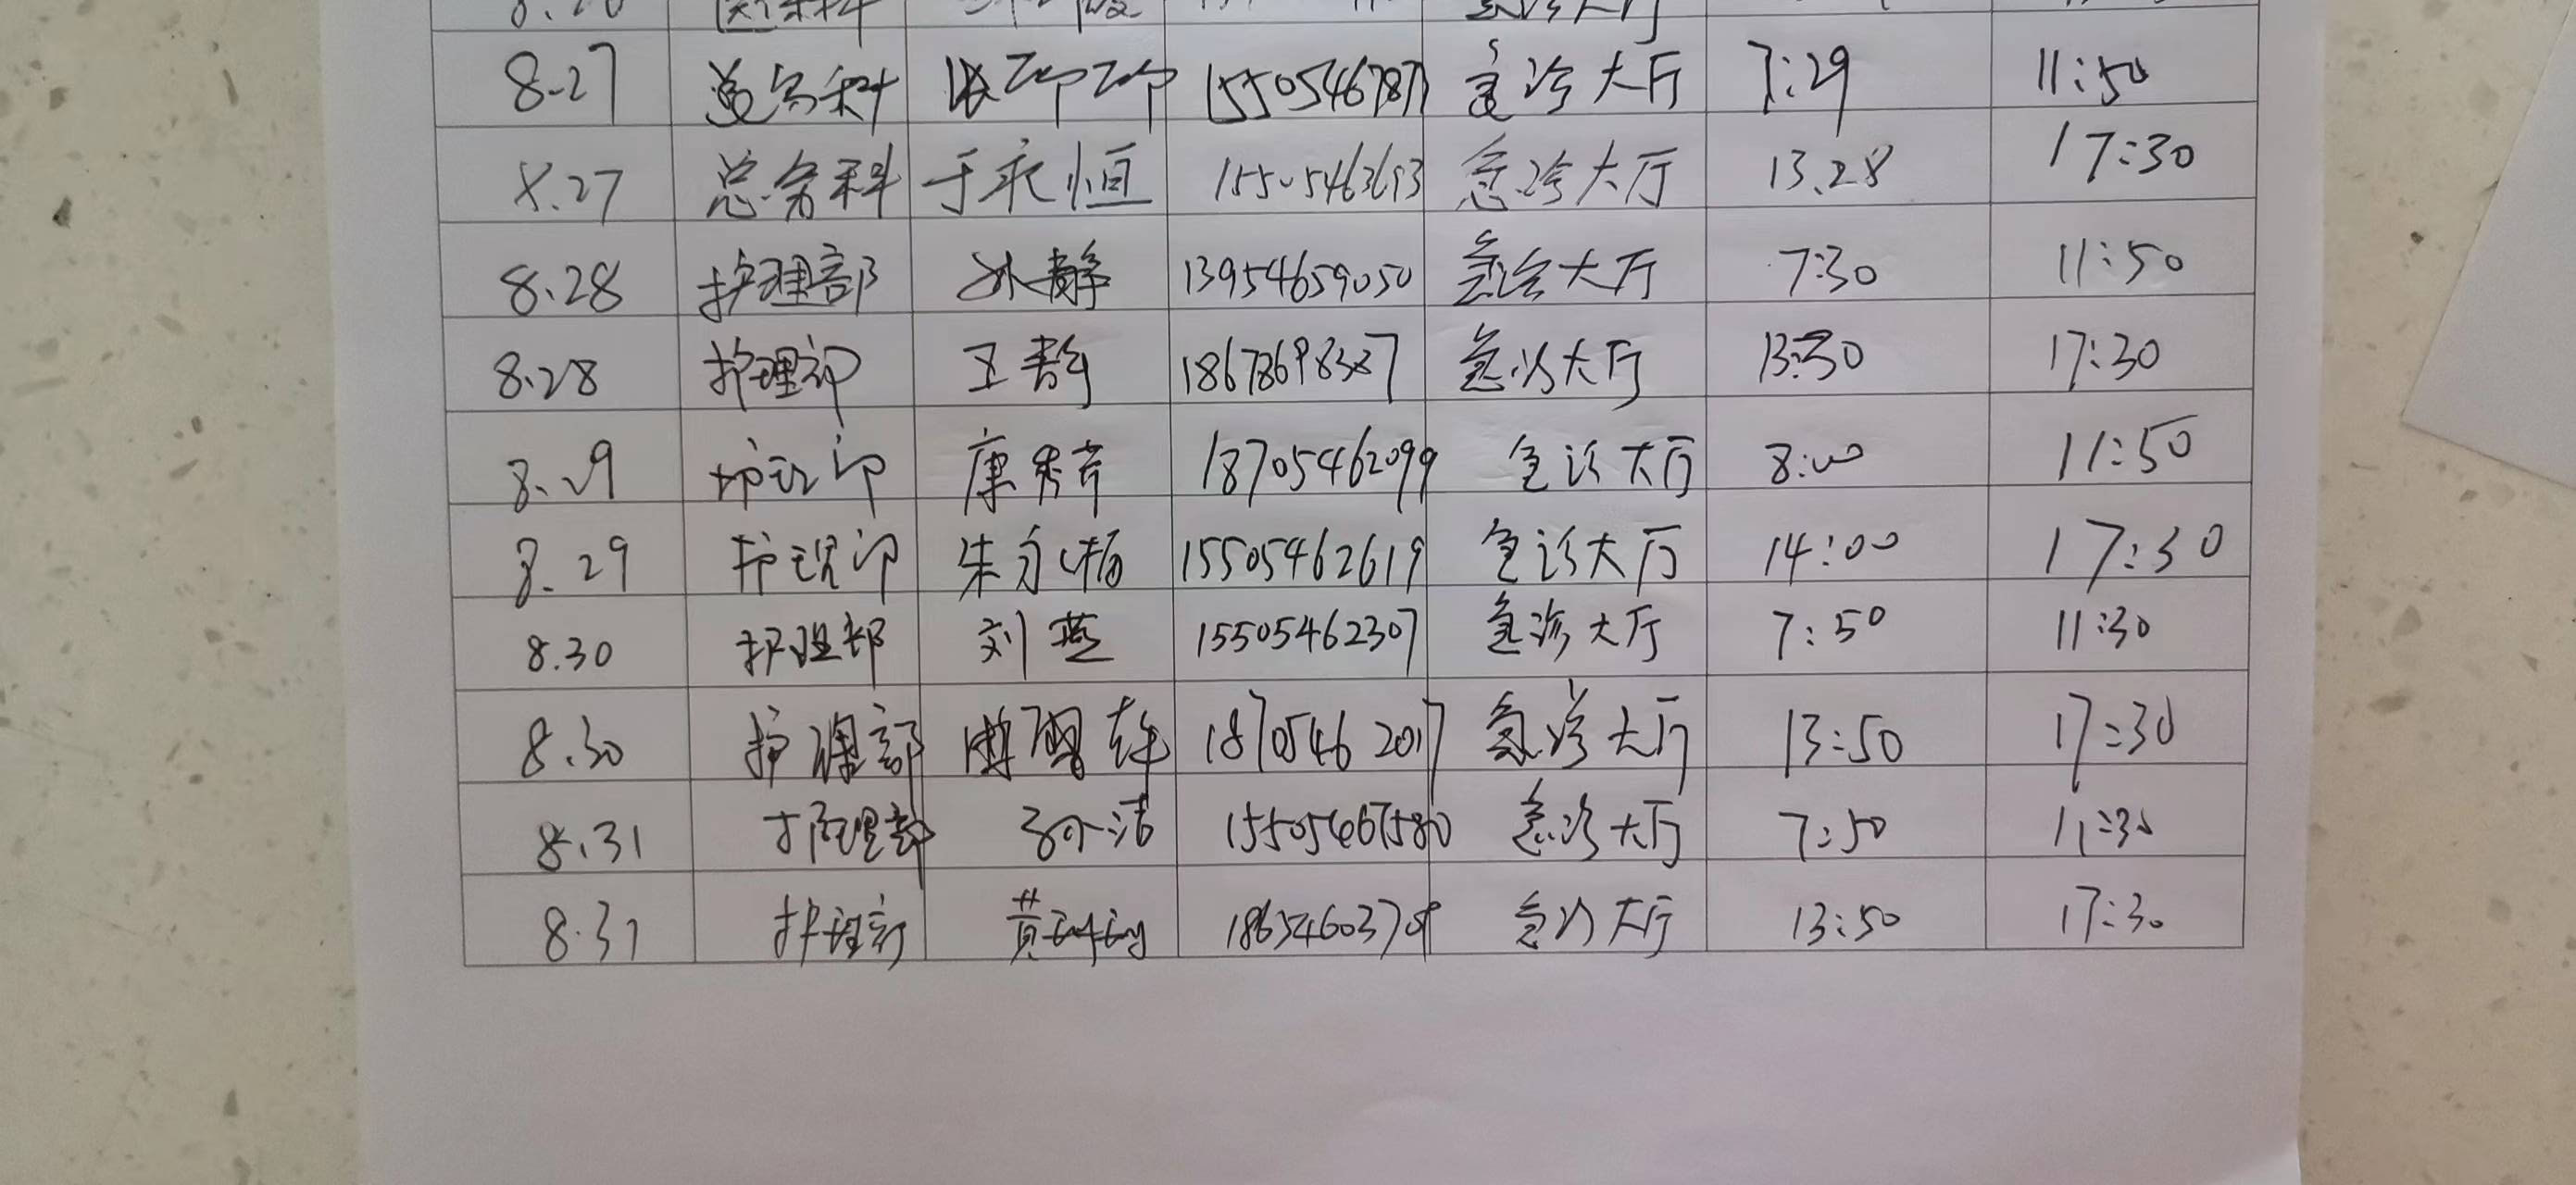 8.27 总务科 15505467877 急诊大厅 7:29 11:50
8.27 总务科 于永恒 15505463693 急诊大厅 13.28 17:30
8.28 护理部 孙静 13954659050 急诊大厅 7:30 11:50
8.28 护理部 王静 急诊大厅 13:30 17:30
8.29 护理部 康秀芹 18705462099 急诊大厅 8:00 11:50
8.29 护理部 朱永梅 15505462619 急诊大厅 14:00 17:30
8.30 护理部 刘燕 15505462307 急诊大厅 7:50 11:30
8.30 护理部 18705462017 急诊大厅 13:50 17:30
8.31 护理部 孙洁 15505467580 急诊大厅 7:50 11:30
8.31 护理部 黄 急诊大厅 13:50 17:30